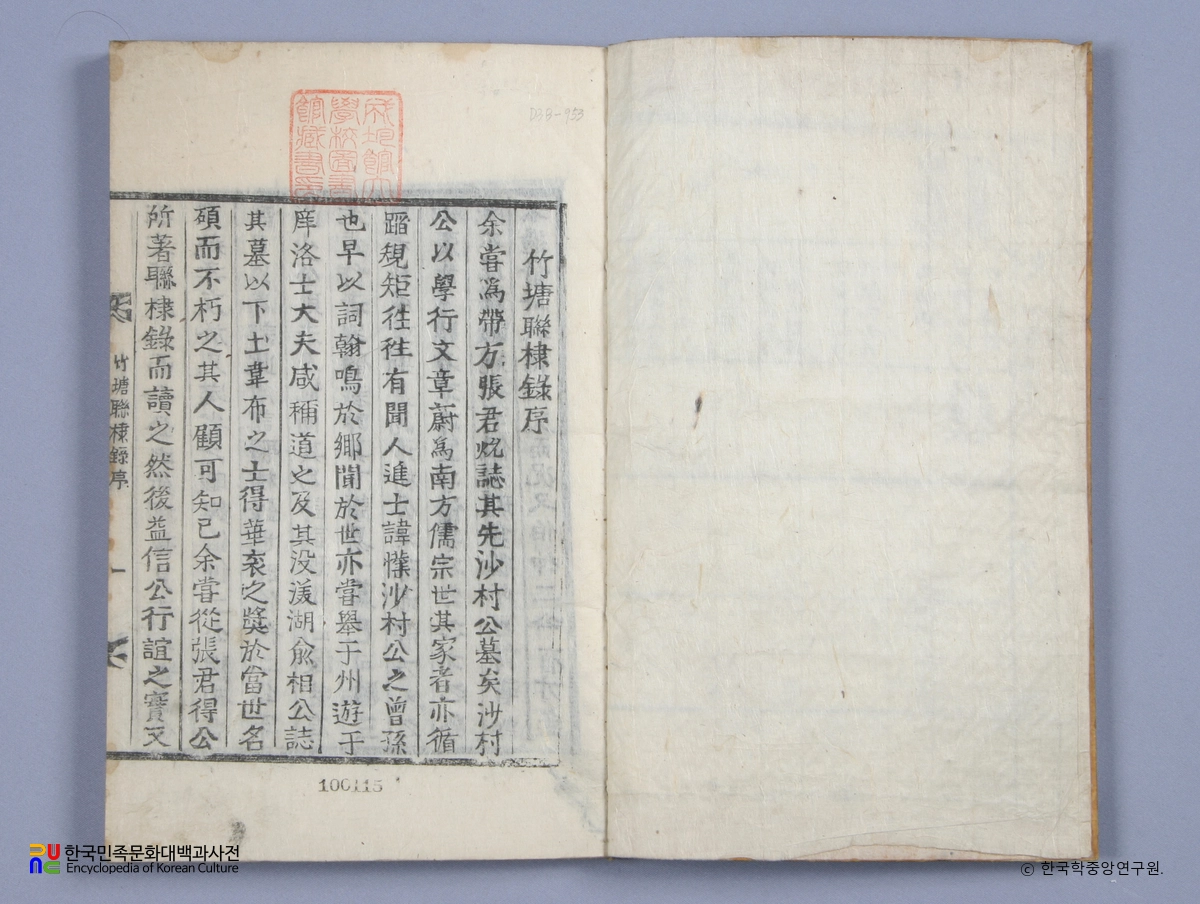 竹塘聯棣錄序
余嘗爲帶方張君烒誌其先沙村公墓矣沙村
公以學行文章蔚爲南方儒宗世其家者亦循
蹈規矩徃徃有聞人進士諱㦿沙村公之曾孫
也早以詞翰鳴於鄉聞於世亦嘗舉于州遊于
庠洛士大夫咸稱道之及其没湲湖兪相公誌
其墓以下土韋布之士得華衮之奬於當世名
碩而不朽之其人顧可知已余嘗從張君得公
所著聯棣錄而讀之然後益信公行誼之寶又
竹塘聯棣錄序
一
成均館大
學校圖書
館藏書印
D3B-953
100115
한국민족문화대백과사전
Encyclopedia of Korean Culture
© 한국학중앙연구원.